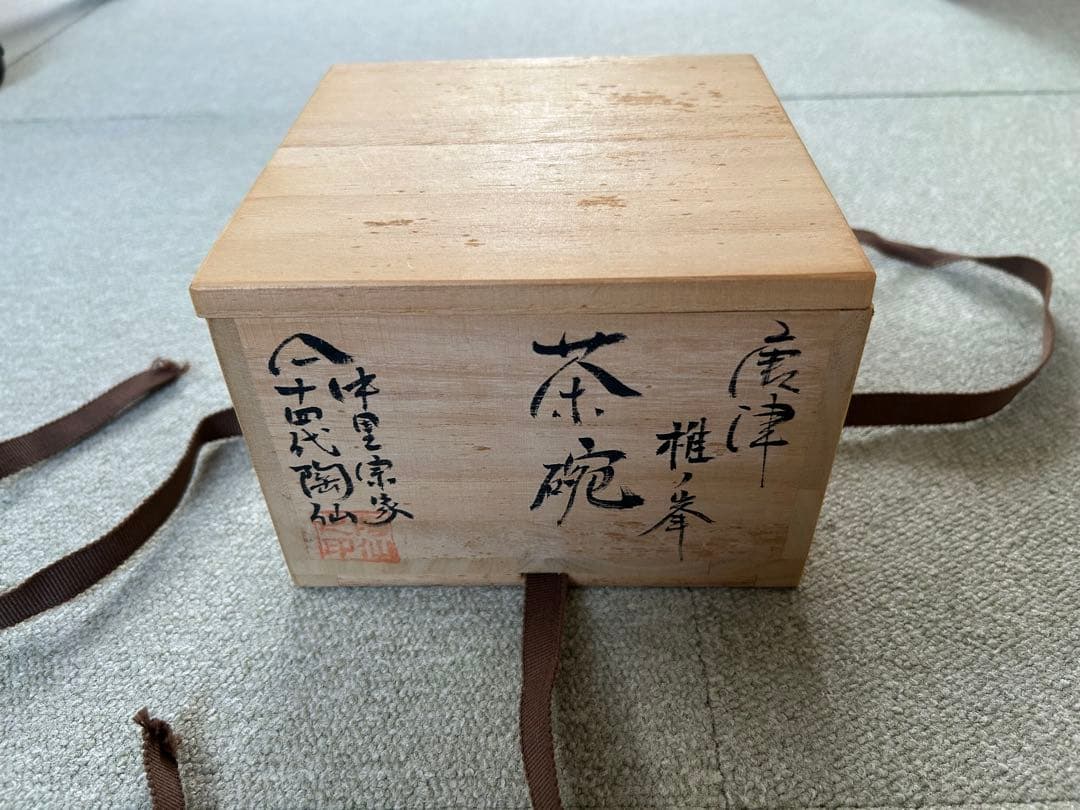 唐津
椎ノ峯
茶碗
中里宗家
十四代陶仙
仙印